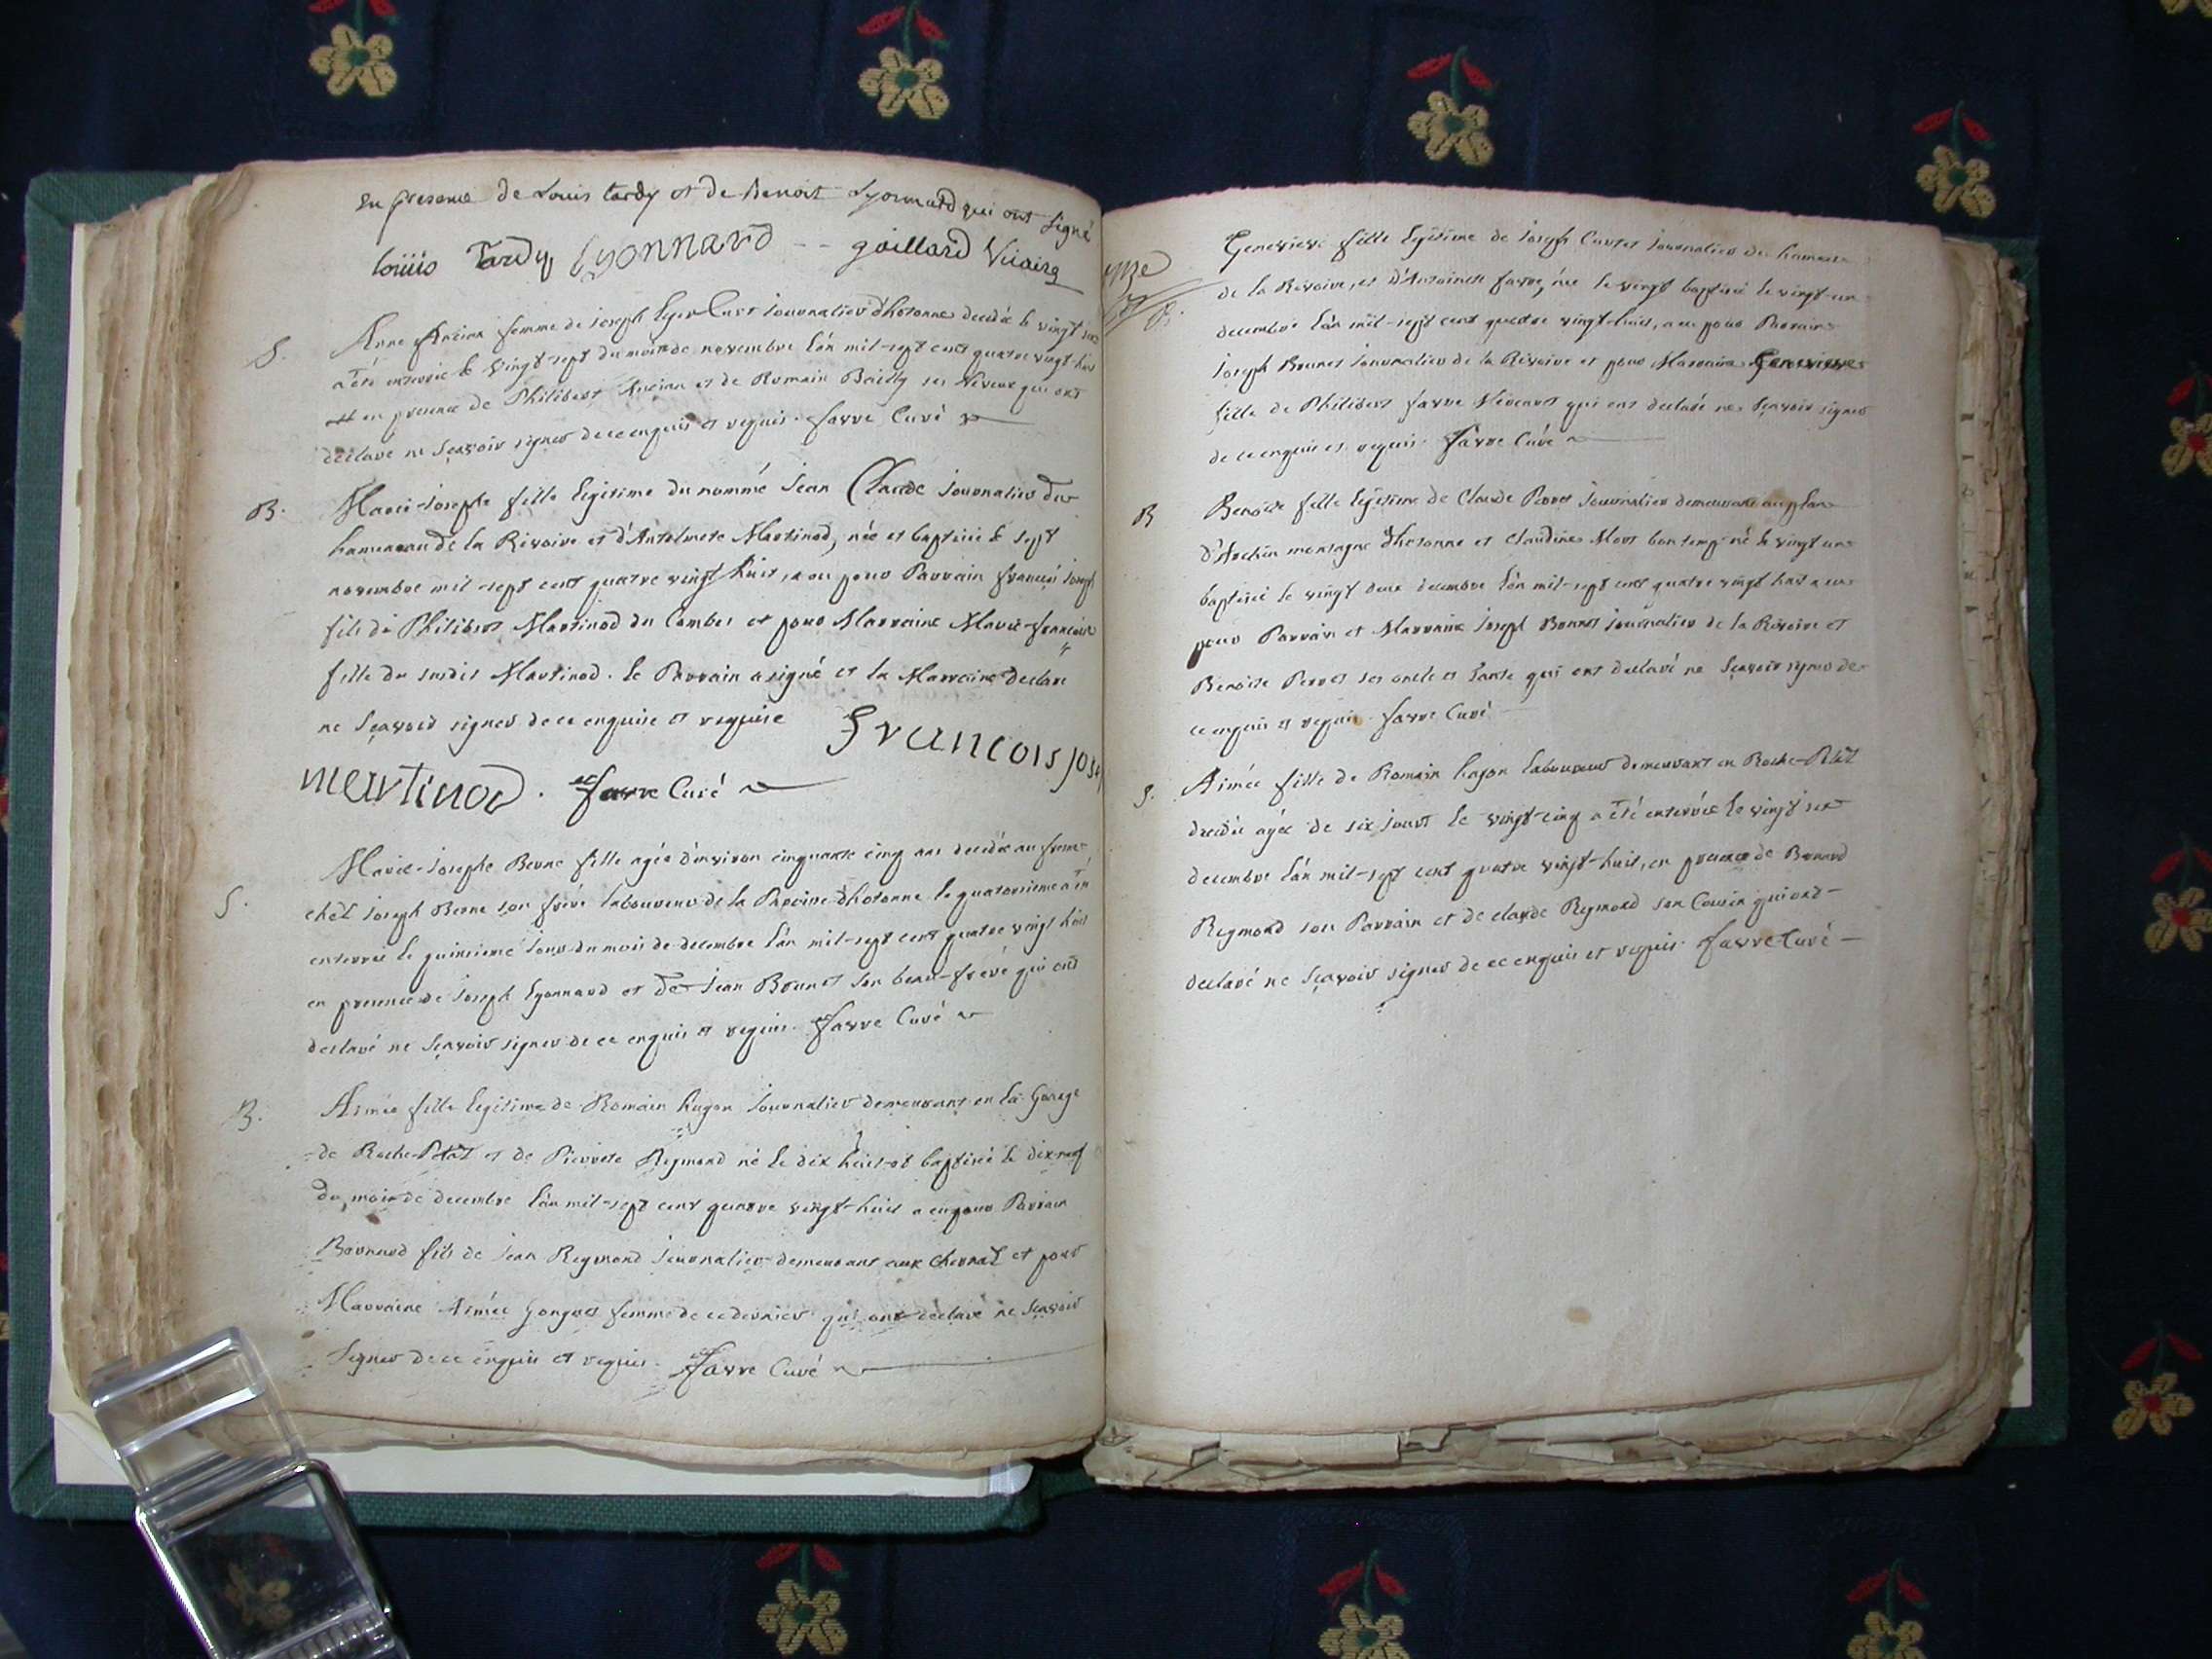 en presence de Louis tardy et de Benoit Lyonnard qui ont signé
louis Tardy Lyonnard -- gaillard Vicaire
S. Anne Ancian femme de joseph journalier d'hotonne decedée le vingt six
a été enterrée le vingt-sept du mois de novembre l'an mil-sept cent quatre vingt-huit
en presence de Philibert Ancian et de Romain Bailly ses Neveux qui ont
declaré ne Sçavoir signer de ce enquis et requis. favre Curé
B. Marie-Josephe fille legitime du nommé Jean Claude Journalier du
hameau de la Rivoire et d'Antelmete Martinod, née et baptisée le sept
novembre mil-sept cent quatre vingt huit, a eu pour Parrain françois Joseph
fils de Philibert Martinod du Combes et pour Marraine Marie-françoise
fille du susdit Martinod. le Parrain a signé et la Marraine declaré
ne Sçavoir signer de ce enquise et requise Francois Jose
martinod. favre Curé
S. Marie-Josephe Berne fille agée d'environ cinquante cinq ans decedée au
chez Joseph Berne son frère laboureur de la Paroisse d'hotonne le quatorsieme a été
enterrée le quinsieme jour du mois de decembre l'an mil-sept cent quatre vingt huit
en presence de Joseph Lyonnard et de Jean Brunet son beau-frère qui ont
declaré ne Sçavoir signer de ce enquis et requis. favre Curé
B. Aimée fille legitime de Romain hugon Journalier demeurant en la Gorge
de Roche-Petat et de Pierrete Reymond né le dix huit et baptisée le dix-neuf
du mois de decembre l'an mil-sept cent quatre vingt-huit a eu pour Parrain
Bernard fils de Jean Reymond Journalier demeurant aux et pour
Marraine Aimée femme de ce dernier qui ont declaré ne Sçavoir
Signer de ce enquis et requis. favre Curé
B. Genevieve fille legitime de Joseph Journalier du hameau
de la Rivoire, et d'Antoinette favre, née le vingt baptisée le vingt-un
decembre l'an mil-sept cent quatre vingt-huit, a eu pour Parrain
Joseph Brunet Journalier de la Rivoire et pour Marraine Genevieve
fille de Philibert favre qui ont declaré ne Sçavoir signer
de ce enquis et requis. favre Curé
B Benoite fille legitime de Claude Perret Journalier demeurant au plan
d'Archin montagne d'hotonne et Claudine né le vingt un
baptisée le vingt deux decembre l'an mil-sept cent quatre vingt huit a eu
pour Parrain et Marraine Joseph Bonnet Journalier de la Rivoire et
Benoite Perret ses oncle et tante qui ont declaré ne Sçavoir signer de
ce enquis et requis. favre Curé
S. Aimée fille de Romain hugon laboureur demeurant en Roche-Petat
decedée agée de six jours le vingt-cinq a été enterrée le vingt six
decembre l'an mil-sept cent quatre vingt-huit, en presence de Bernard
Reymond son Parrain et de claude Reymond son Cousin qui ont
declaré ne Sçavoir signer de ce enquis et requis. favre Curé